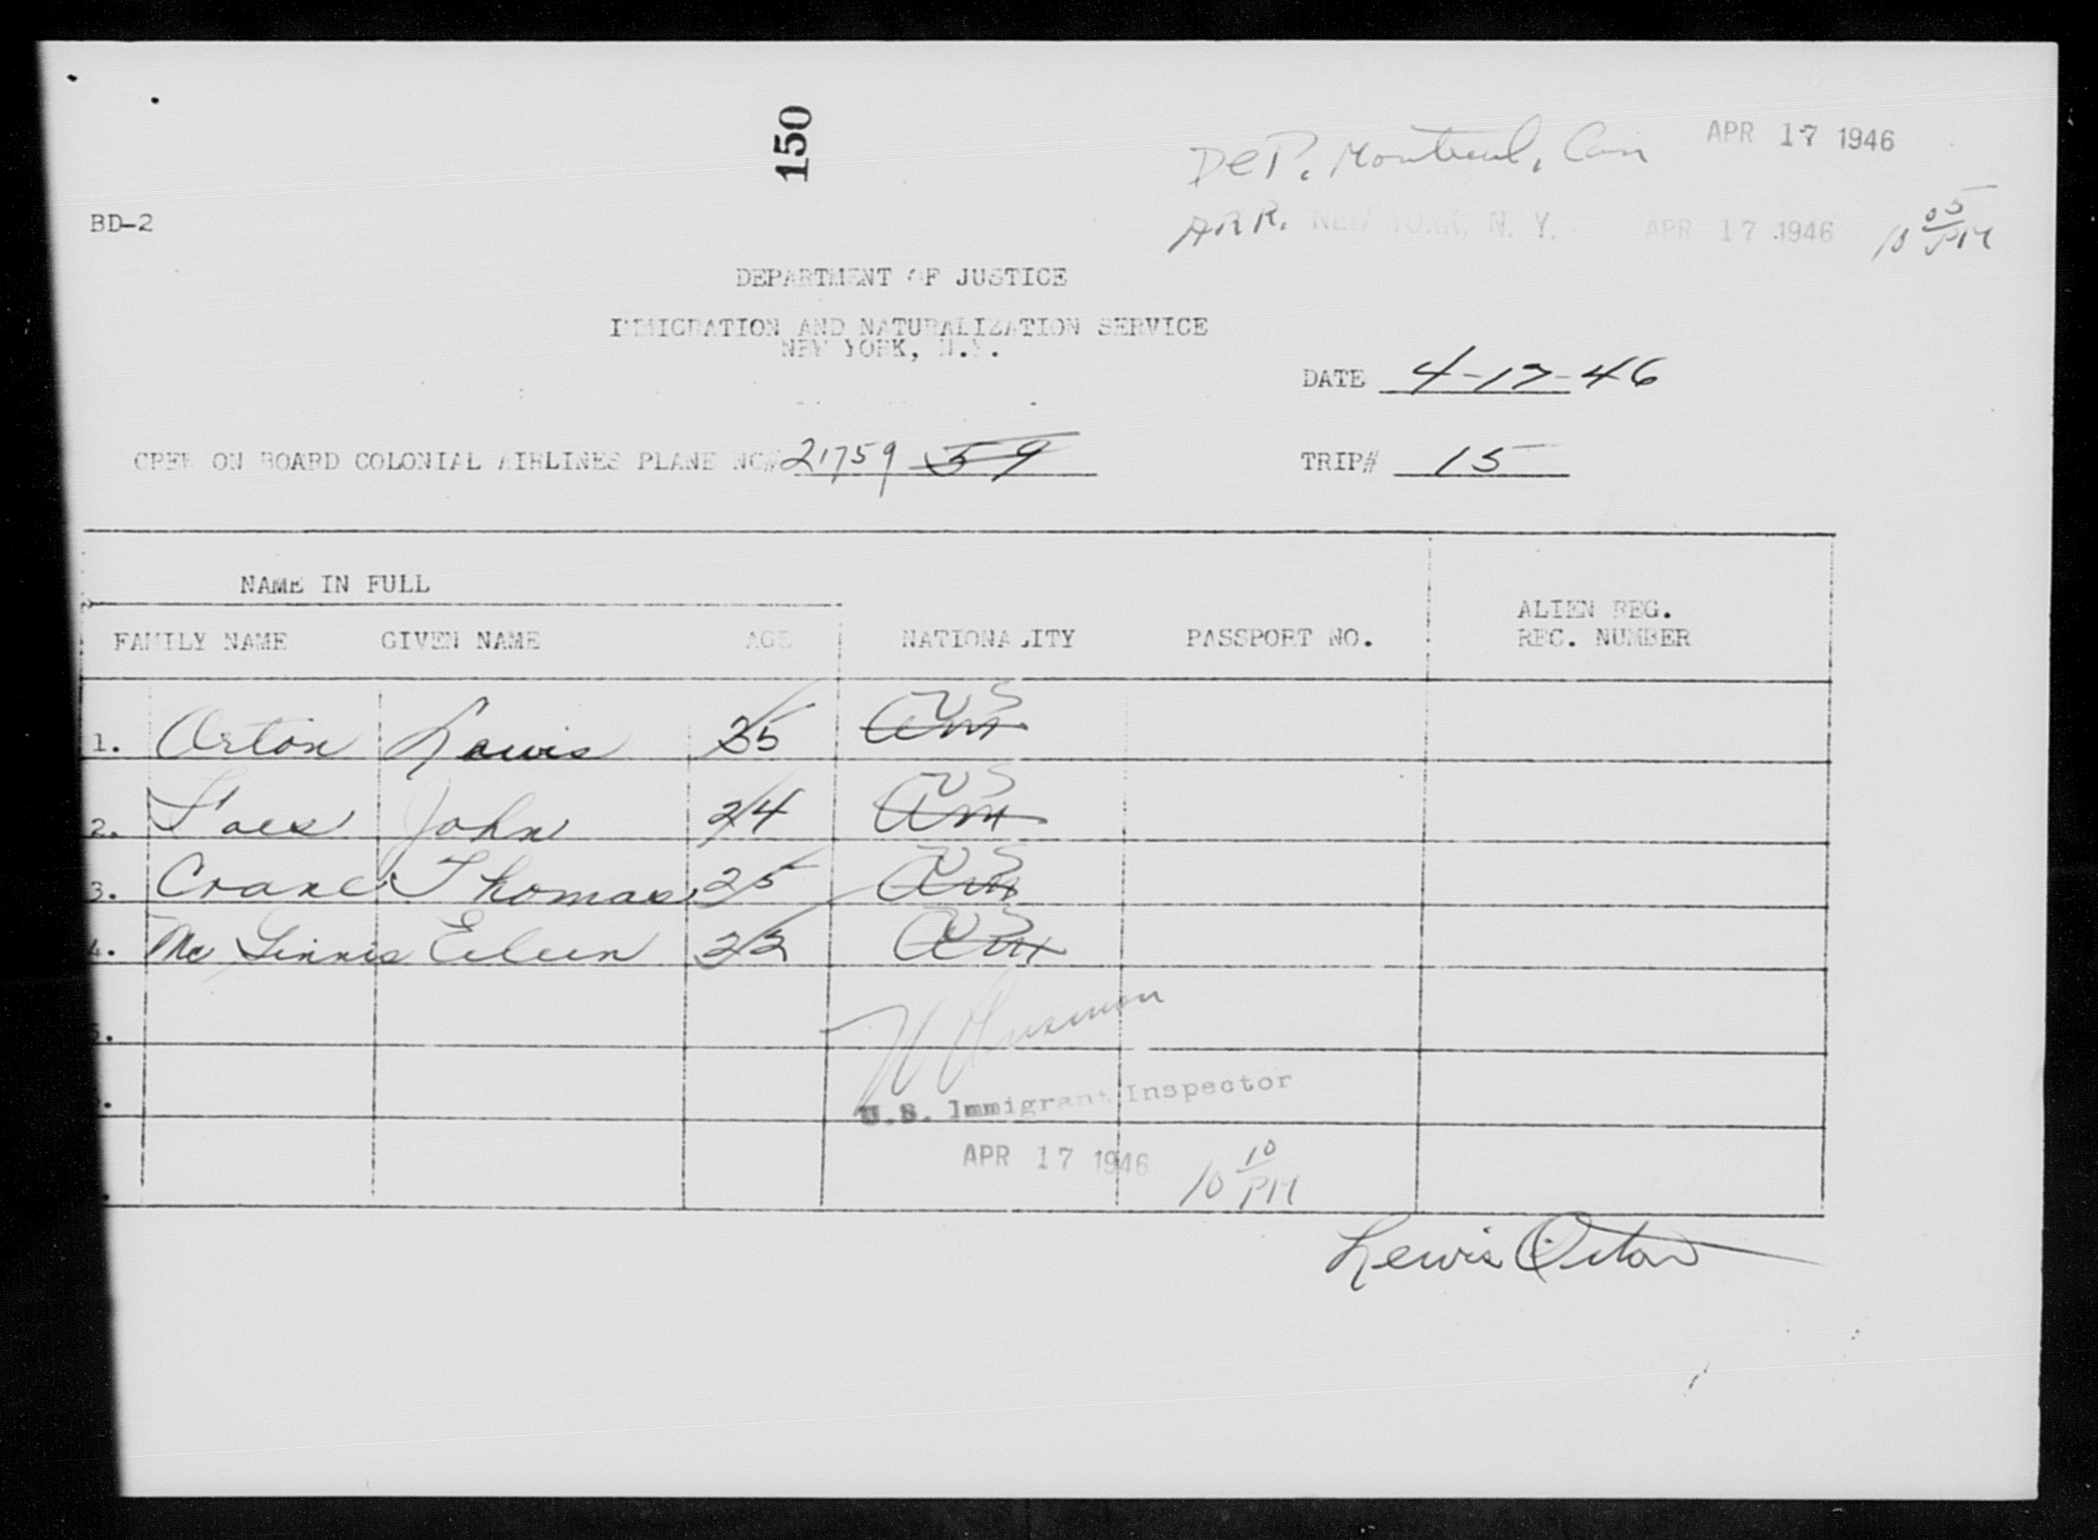 150
DEP. Montreal, Can APR 17 1946
ARR. NEW YORK, N. Y. APR 17 1946 10 05 PM
BD-2
DEPARTMENT OF JUSTICE
IMMIGRATION AND NATURALIZATION SERVICE
NEW YORK, N.Y.
DATE 4-17-46
CREW ON BOARD COLONIAL AIRLINES PLANE NO# 21759 59
TRIP# 15
NAME IN FULL
ALIEN REG.
FAMILY NAME GIVEN NAME AGE NATIONALITY PASSPORT NO. REC. NUMBER
1. Orton Lewis 35 Am US
2. John 24 Am US
3. Crane Thomas 25 Am US
4. Mc Ginnis Eileen 22 Am US
5.
U.S. Immigrant Inspector
APR 17 1946 10 10 PM
Lewis Orton